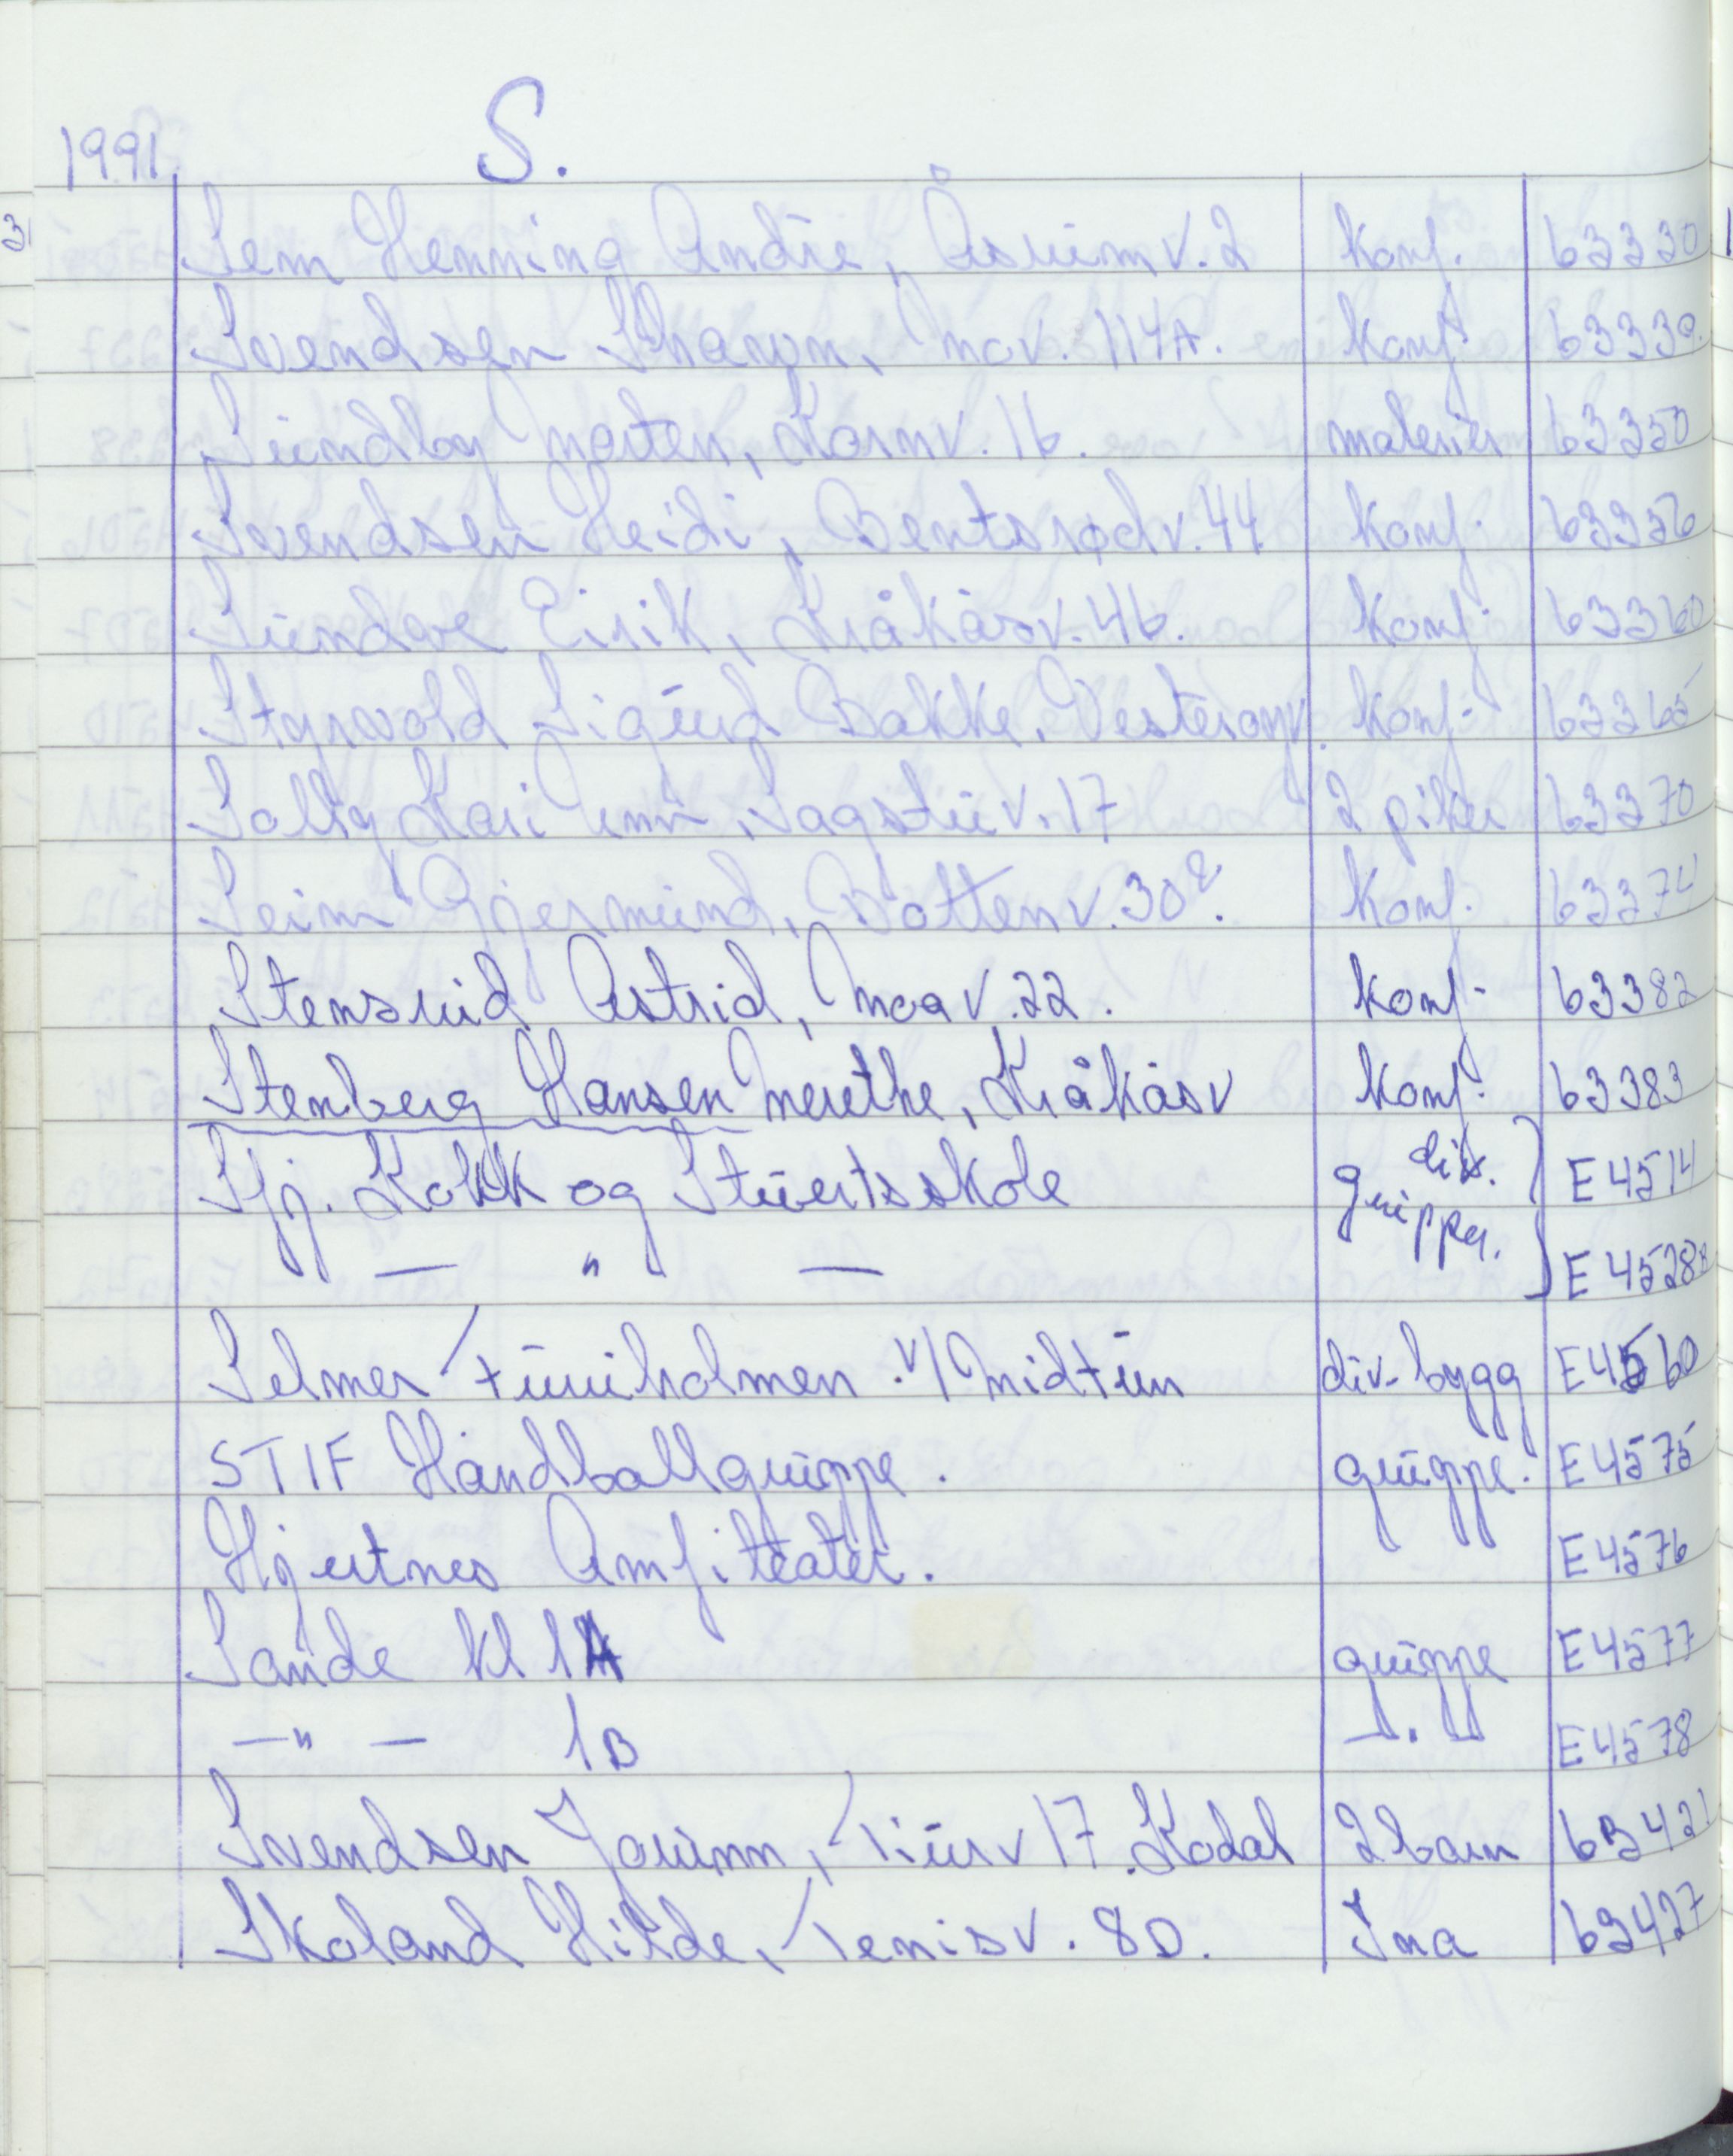 1991. S.
Sem Henning Andre, Åsrumv. 2 Konf. 63330
Svendsen Sharon, Mov. 114A. Konf. 63339.
Sundby Morten, Kornv. 16. malerier 63350
Svendsen Heidi, Bentsrødv. 44. Konf. 63356
Sundar Eirik, Kråkåsv. 46. Konf. 63360
Styrvold Sigurd Bakke, Vesterøyv. Konf. 63365
Solli Kari, Sagstuv. 17 2 piker 63370
Seim Gjermund, Bottenv. 30 Konf. 63374
Stensrud Astrid, Moav. 22. Konf. 63382
Stenberg Hansen Merethe, Kråkåsv Konf. 63383
Sfj. Kokk og Stuertsskole div. grupper. E 4514
— " — E 4528
Selmer Furuholmen v/ Midtun div. bygg E 4560
STIF Håndballgruppe. gruppe. E 4575
Hjertnes Amfiteater. E 4576
Sande kl 1A gruppe E 4577
— " — 1B — " — E 4578
Svendsen Jorunn, Furuv 17. Kodal 2 barn 63421
Skoland Hilde, Tenisv. 8D. Ina 63427